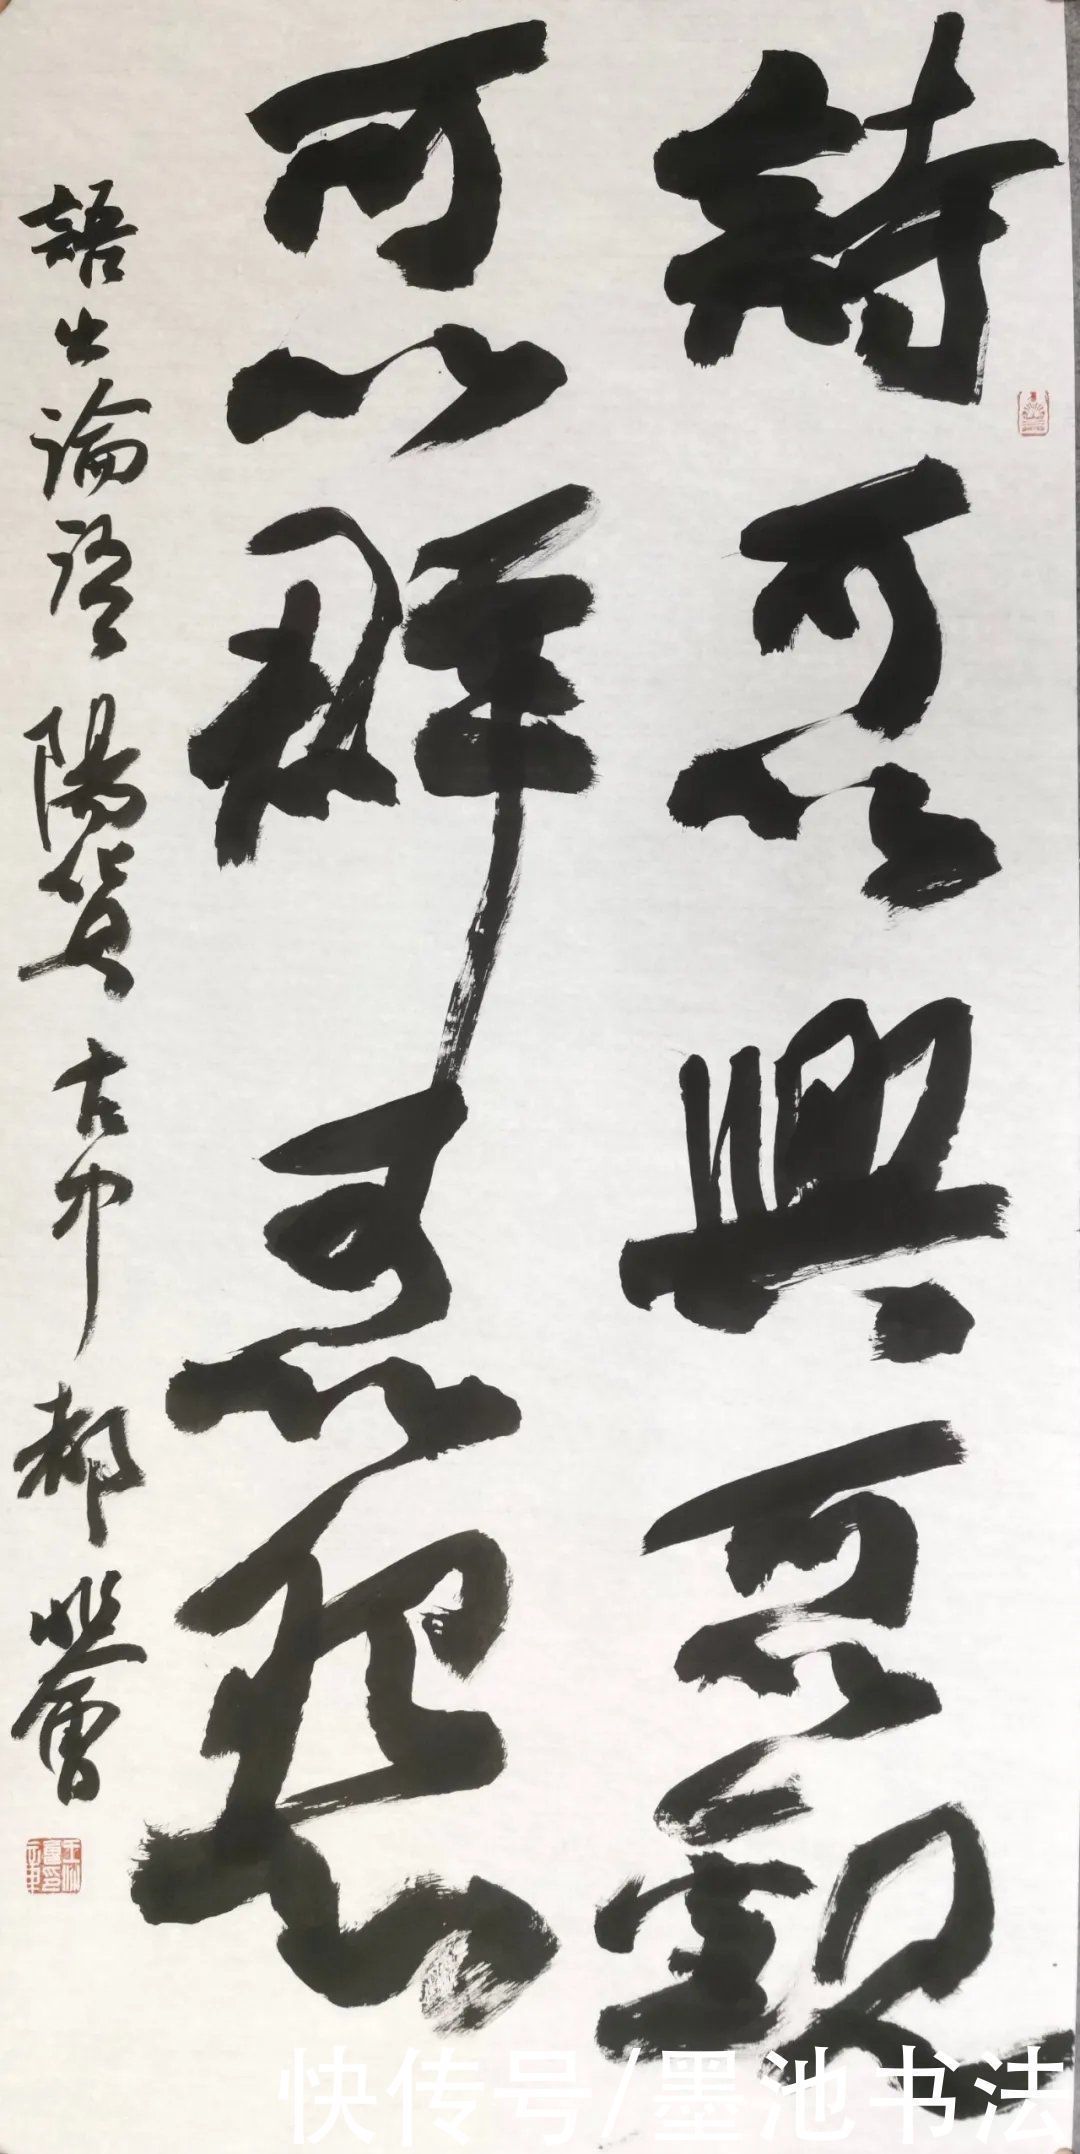 詩可以興可以觀
可以群可以怨
語出論語陽貨古中都照會
快传号/墨池书法